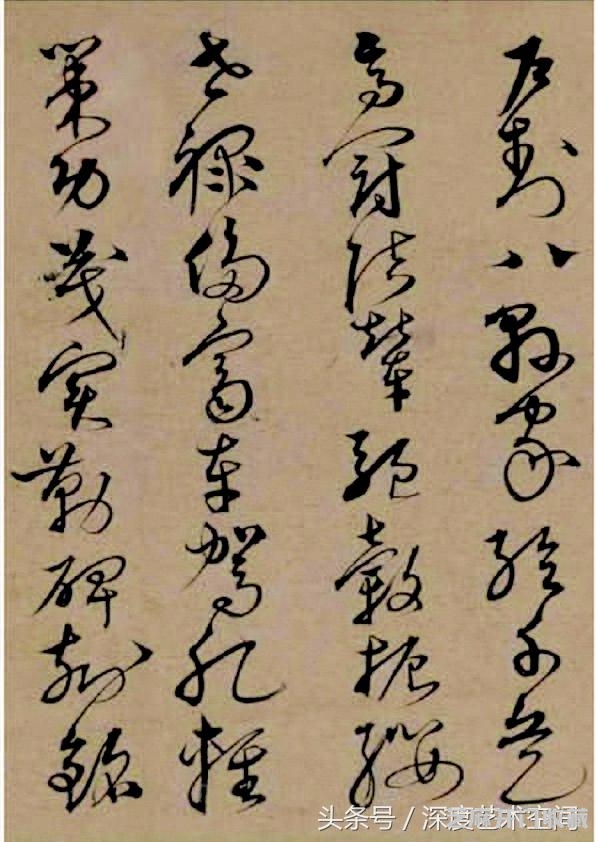 户封八縣家給千兵
高冠陪輦驅轂振纓
世祿侈富車駕肥輕
策功茂實勒碑刻銘
头条号／深度艺术空间